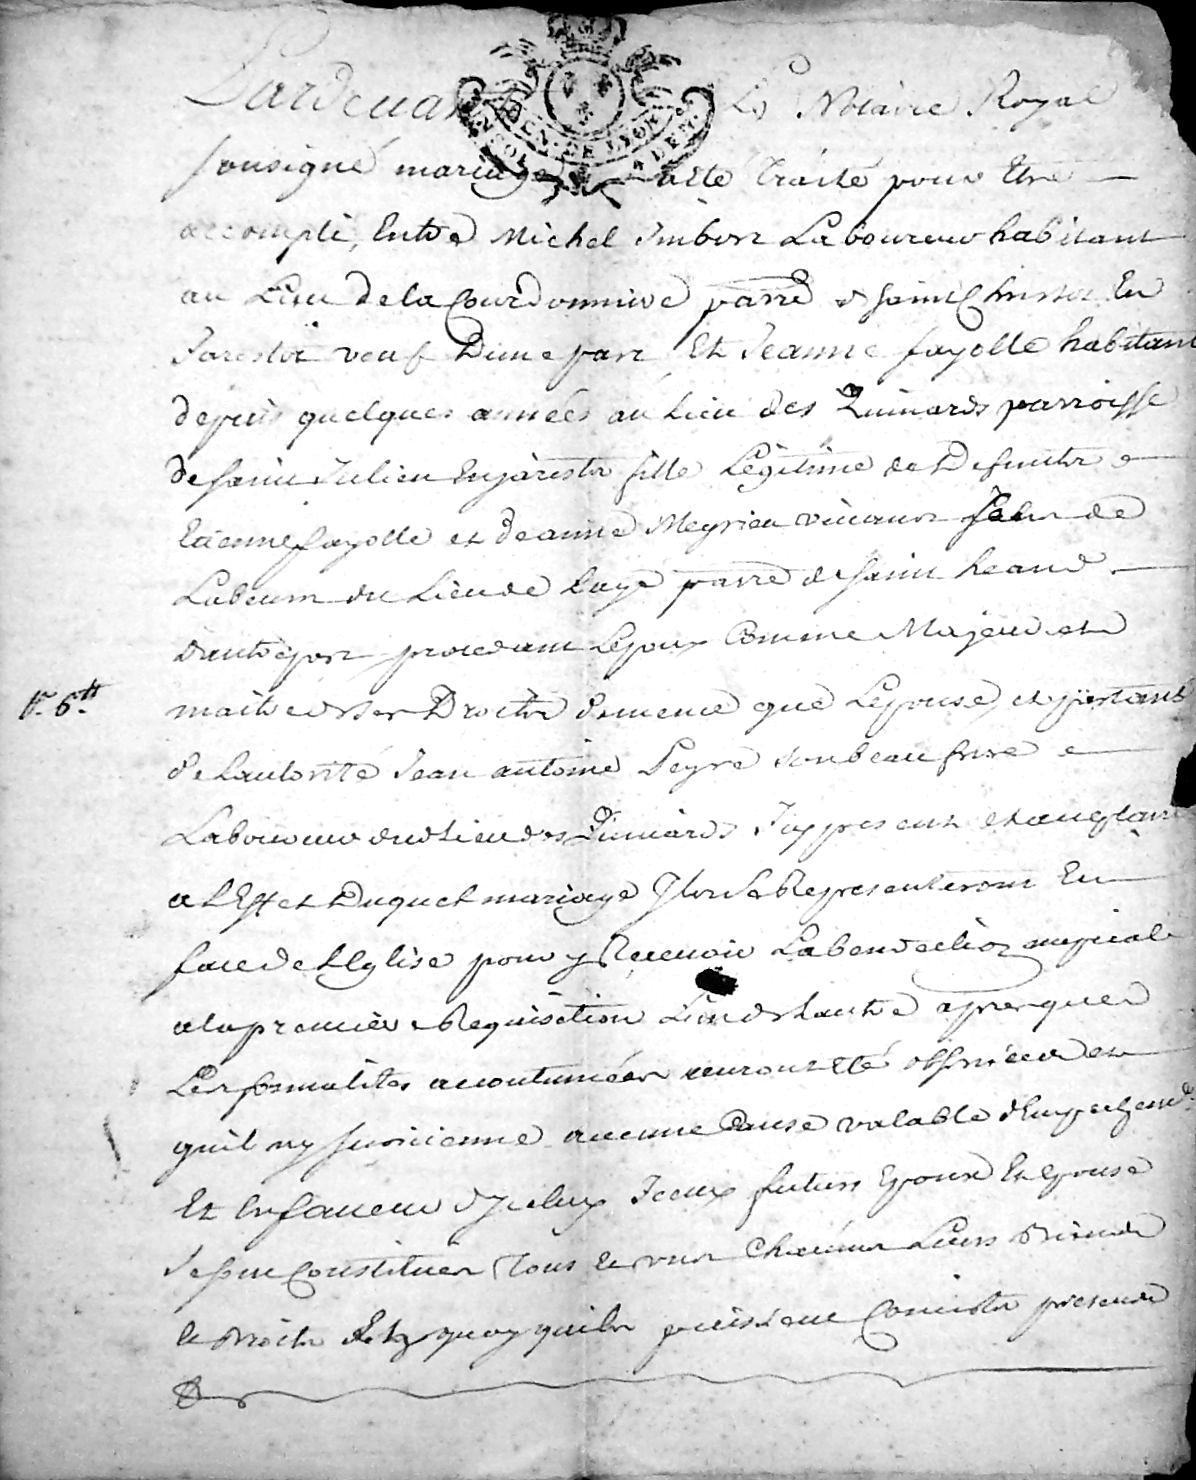 Pardevant Le Notaire Royal
GEN. DE LYON
sousigné mariage a été traité pour Etre
accompli, Entre Michel Imbert Laboureur habitant
au Lieu de la Courdonnire parre de saint Christot En
Jarestoi veuf Dune part, Et Jeanne fayolle habitant
depuis quelques années au Lieu des parroisse
de saint Julien En jarestoi fille Légitime de Deffuntz
Etienne fayolle et Jeanne Meyrieu vivants de
Labeurs du Lieu de parre de saint heand
Dautre part procedant Lepoux Comme Majeur et
pr. 6tt
maitre de ses Droits de meme que Lepouse, et
de Lautorité Jean antoine Peyre son beau frere
Laboureur dud Lieu des Icy present et acceptant
a LEffet Duquel mariage Ils se Representeront En
face de LEglise pour y Recevoir La benediction nupcialle
a la premiere Requisition Lun de Lautre apres que
Les formalites acoutumées auront Eté observées et
quil ny surviienne aucune Cause valable dEmpechemt
Et En faveur dIceluy Iceux futurs Epoux Et Epouse
se sont Constitués Tous et uns Chacuns Leurs Biens
et Droits Et quoy quils puissent Consister presents